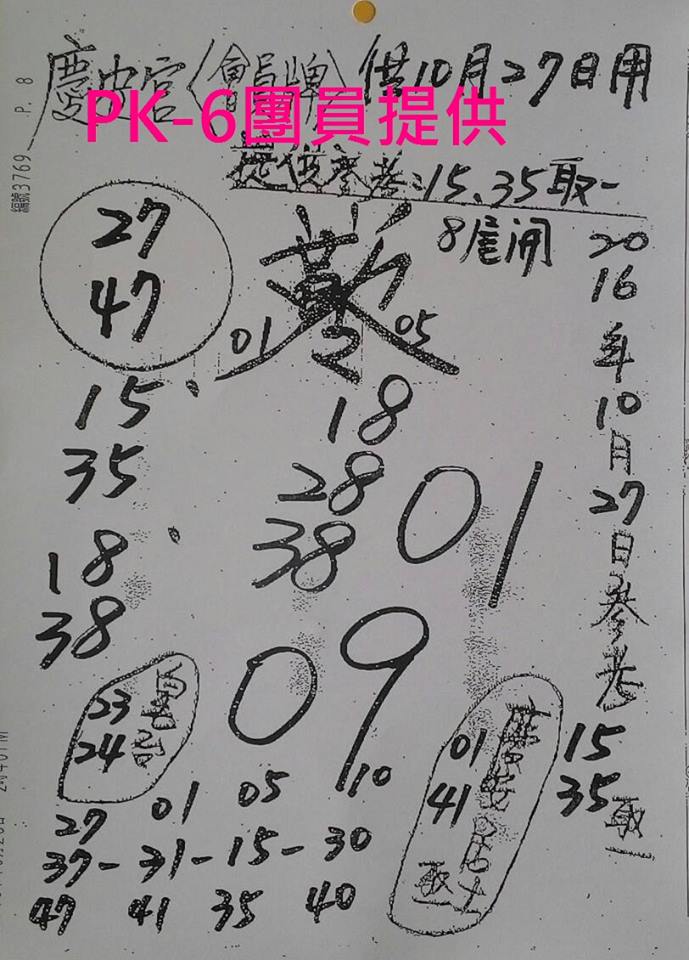 慶安宮〈會員牌〉供10月27日用
PK-6團員提供
提供參考:15.35取一
8尾開
編號3769 P. 8
27
47
01 2 05
15
35
18
28
38
01
18
38
09
2016年10月27日參考
15
35 取一
23
24
01
41
取一
27 01 05 10
37-31-15-30
47 41 35 40